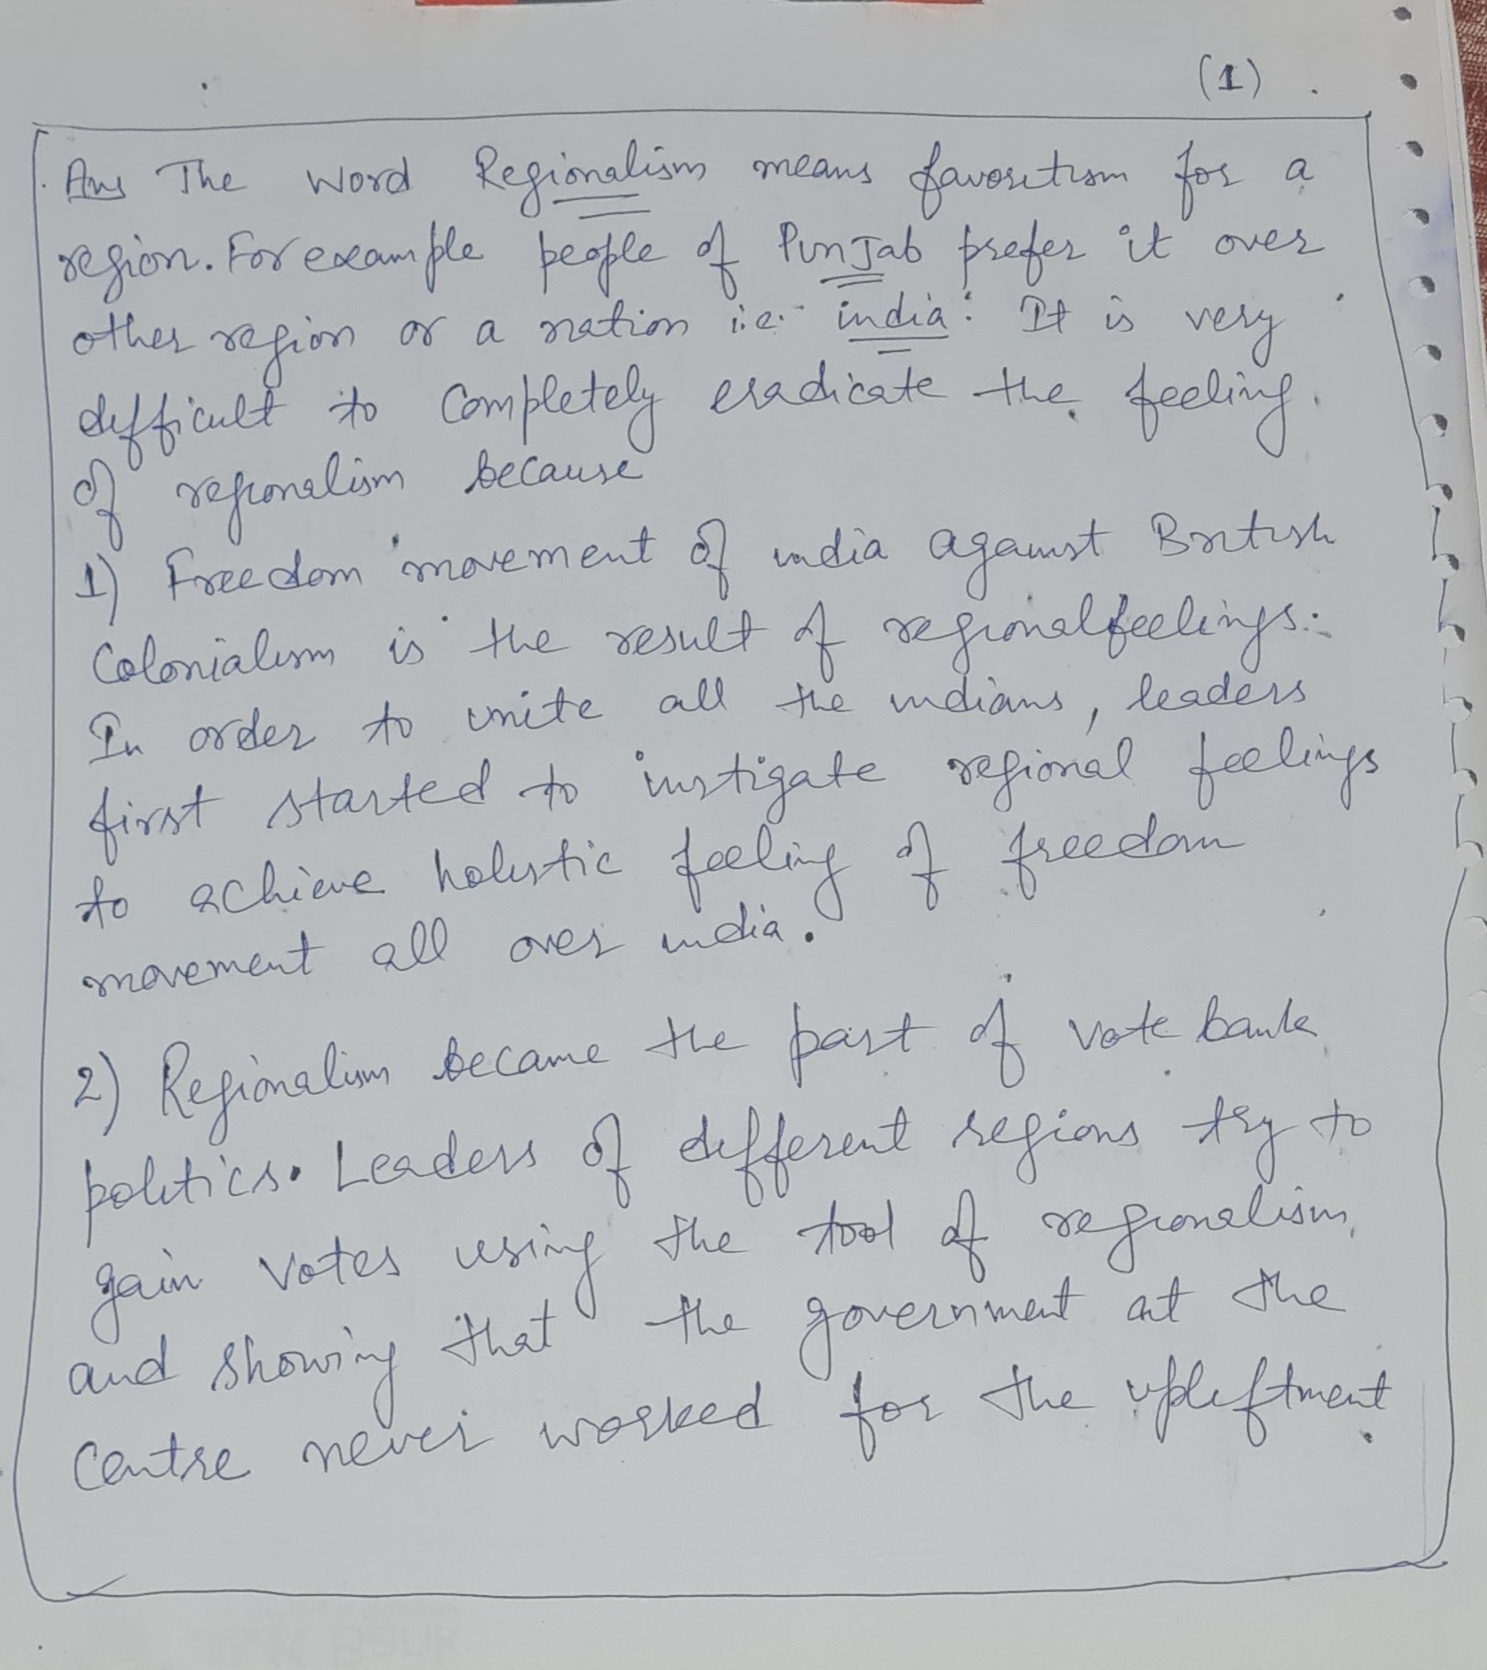 (1)
Ans The word Regionalism means favoritism for a
region. For example people of Punjab prefer it over
other region or a nation i.e. india. It is very
difficult to completely eradicate the feeling
of regionalism because
1) Freedom movement of india against British
Colonialism is the result of regional feelings.
In order to unite all the indians, leaders
first started to instigate regional feelings
to achieve holistic feeling of freedom
movement all over india.
2) Regionalism became the part of vote bank
politics. Leaders of different regions try to
gain votes using the tool of regionalism
and showing that the government at the
Centre never worked for the upliftment